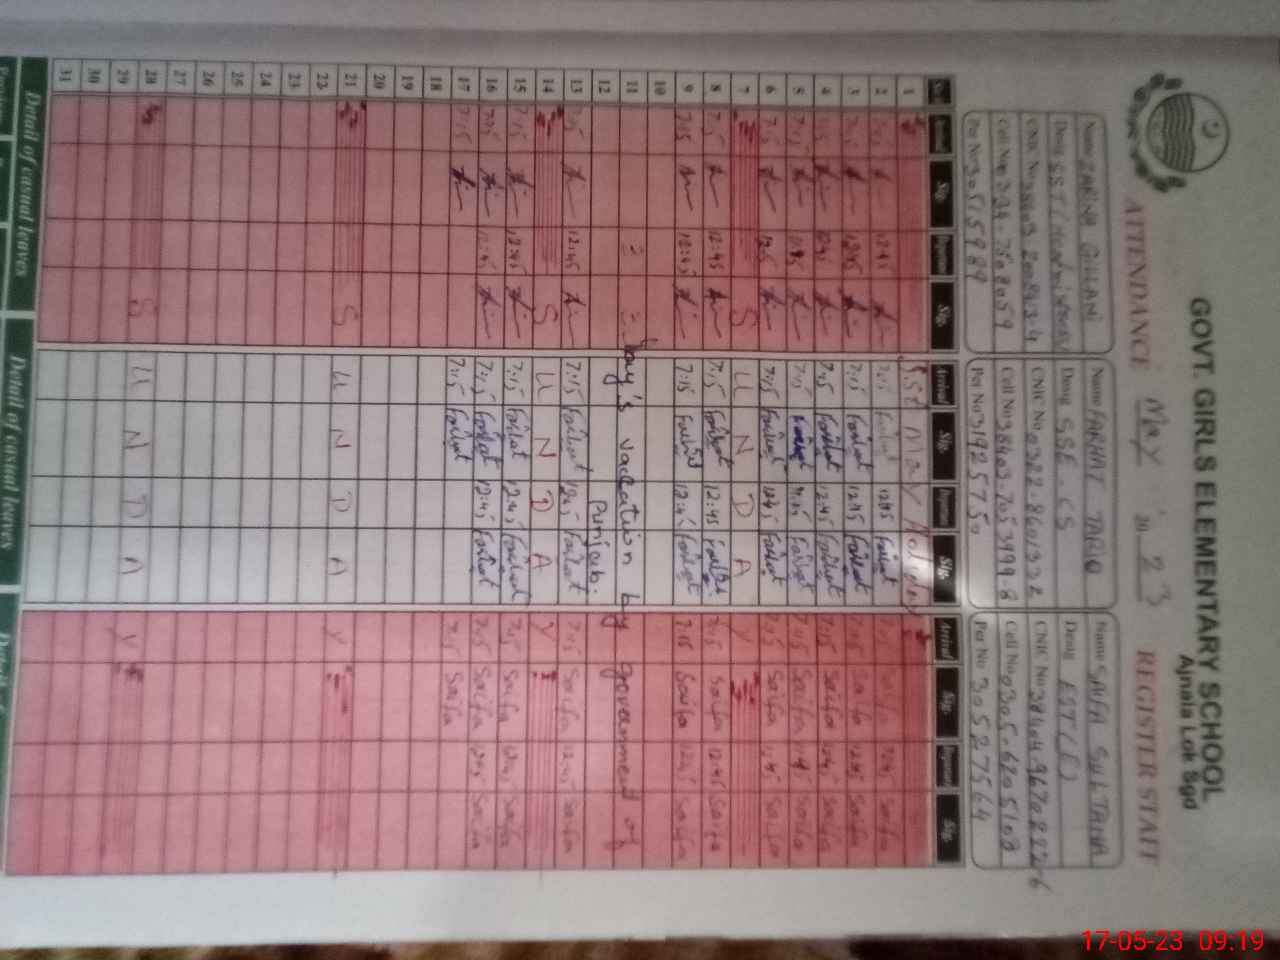 GOVT. GIRLS ELEMENTARY SCHOOL
Ajnala Lok Sgd
ATTENDANCE May 2023 REGISTER STAFF
Name ZARINA GILLANI
Desig SST (Headmistress)
Per No 30515989
Name FARHAT TARIQ
Desig SSE. CS
CNIC No 0322-8601332
Cell No 38403-7053999-8
Per No 31925750
Name SAIFA SULTANA
Desig EST(E)
CNIC No 38404-9670822-6
Cell No 0305-6805108
Per No 30527564
Arrival Sig. Departure Sig. Arrival Sig. Departure Sig. Arrival Sig. Departure Sig.
1 1st May Holiday
2 12:45 7:15 Farhat 12:45 Farhat Saifa 12:45 Saifa
3 7:15 12:45 7:15 Farhat 12:45 Farhat 7:15 Saifa 12:45 Saifa
4 12:45 7:15 Farhat 12:45 Farhat 7:15 Saifa 12:45 Saifa
5 7:15 12:45 7:15 Farhat 12:45 Farhat 7:15 Saifa 12:45 Saifa
6 7:15 12:45 7:15 Farhat 12:45 Farhat 7:15 Saifa 12:45 Saifa
7 S U N D A Y
8 7:15 12:45 7:15 Farhat 12:45 Farhat 7:15 Saifa 12:45 Saifa
9 7:15 12:45 7:15 Farhat 12:45 Farhat 7:15 Saifa 12:45 Saifa
10
11 = = Day's vacation by government of
12 Punjab.
13 7:15 12:45 7:15 Farhat 12:45 Farhat 7:15 Saifa 12:45 Saifa
14 S U N D A Y
15 7:15 12:45 7:15 Farhat 12:45 Farhat 7:15 Saifa 12:45 Saifa
16 7:15 12:45 7:15 Farhat 12:45 Farhat 7:15 Saifa 12:45 Saifa
17 7:15 7:15 Farhat 7:15 Saifa
18
19
20
21 S U N D A Y
22
23
24
25
26
27
28 S U N D A Y
29
30
31
Detail of casual leaves Detail of casual leaves
17-05-23 09:19